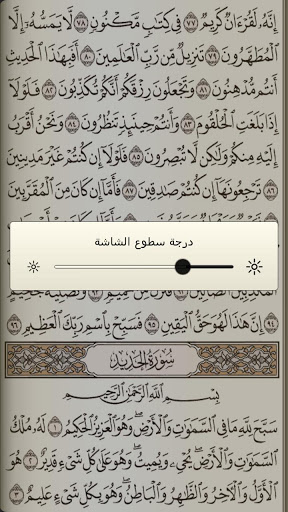 إِنَّهُۥ لَقُرْءَانٌ كَرِيمٌ ٧٧ فِى كِتَٰبٍ مَّكْنُونٍ ٧٨ لَّا يَمَسُّهُۥٓ إِلَّا
ٱلْمُطَهَّرُونَ ٧٩ تَنزِيلٌ مِّن رَّبِّ ٱلْعَٰلَمِينَ ٨٠ أَفَبِهَٰذَا ٱلْحَدِيثِ
أَنتُم مُّدْهِنُونَ ٨١ وَتَجْعَلُونَ رِزْقَكُمْ أَنَّكُمْ تُكَذِّبُونَ ٨٢ فَلَوْلَآ
إِذَا بَلَغَتِ ٱلْحُلْقُومَ ٨٣ وَأَنتُمْ حِينَئِذٍ تَنظُرُونَ ٨٤ وَنَحْنُ أَقْرَبُ
إِلَيْهِ مِنكُمْ وَلَٰكِن لَّا تُبْصِرُونَ ٨٥ فَلَوْلَآ إِن كُنتُمْ غَيْرَ مَدِينِينَ
٨٦ تَرْجِعُونَهَآ إِن كُنتُمْ صَٰدِقِينَ ٨٧ فَأَمَّآ إِن كَانَ مِنَ ٱلْمُقَرَّبِينَ
درجة سطوع الشاشة
٩٤ إِنَّ هَٰذَا لَهُوَ حَقُّ ٱلْيَقِينِ ٩٥ فَسَبِّحْ بِٱسْمِ رَبِّكَ ٱلْعَظِيمِ ٩٦
سُورَةُ الحَدِيدِ
بِسْمِ ٱللَّهِ ٱلرَّحْمَٰنِ ٱلرَّحِيمِ
سَبَّحَ لِلَّهِ مَا فِى ٱلسَّمَٰوَٰتِ وَٱلْأَرْضِ ۖ وَهُوَ ٱلْعَزِيزُ ٱلْحَكِيمُ ١ لَهُۥ مُلْكُ
ٱلسَّمَٰوَٰتِ وَٱلْأَرْضِ ۖ يُحْىِۦ وَيُمِيتُ ۖ وَهُوَ عَلَىٰ كُلِّ شَىْءٍ قَدِيرٌ ٢ هُوَ
ٱلْأَوَّلُ وَٱلْءَاخِرُ وَٱلظَّٰهِرُ وَٱلْبَاطِنُ ۖ وَهُوَ بِكُلِّ شَىْءٍ عَلِيمٌ ٣